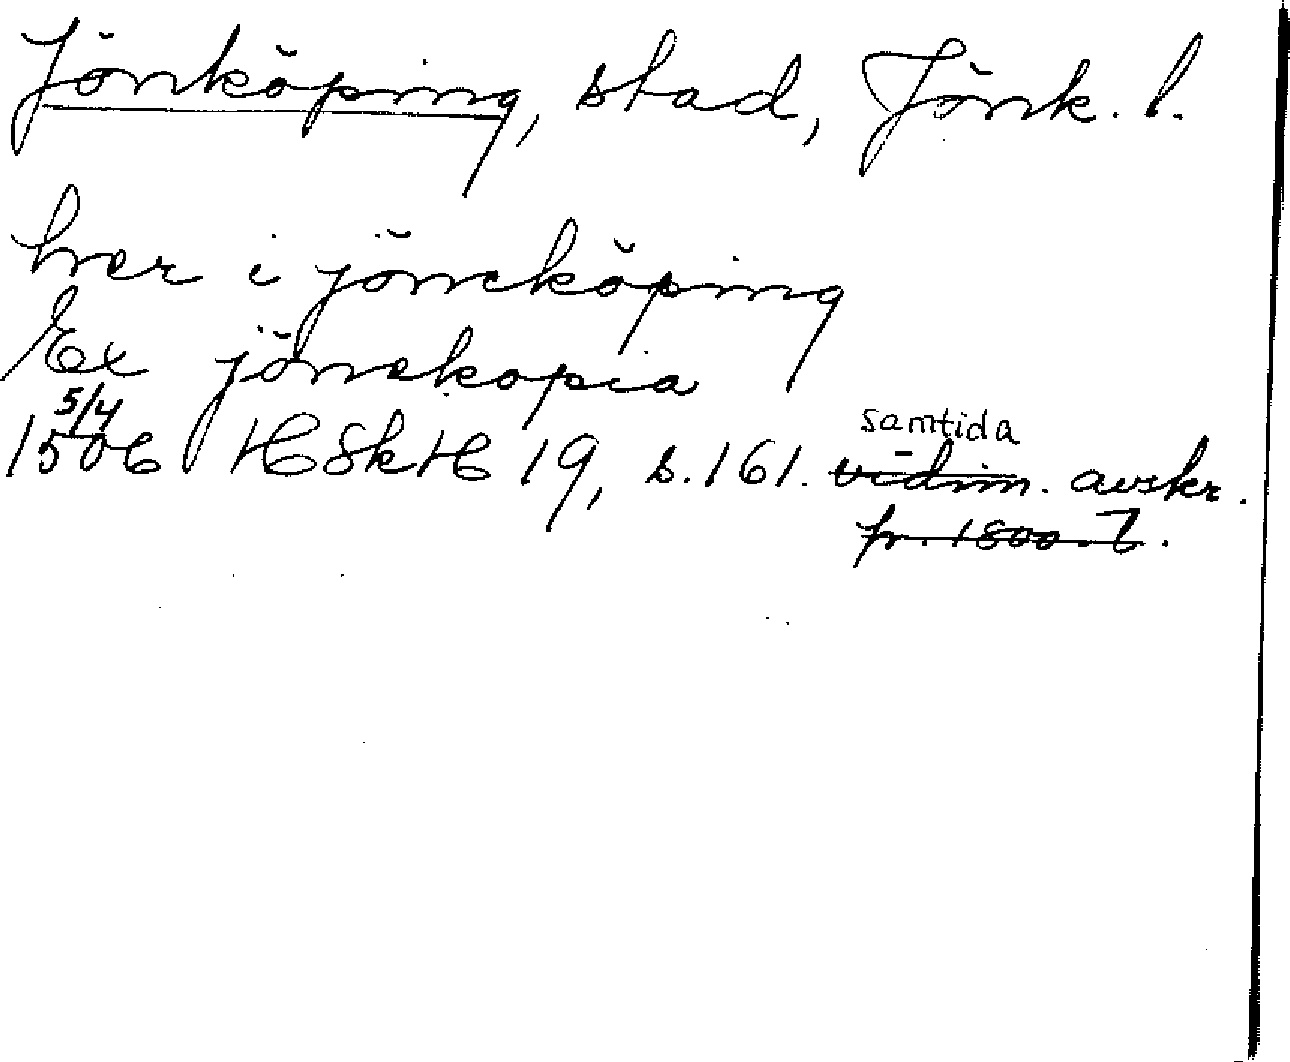 Jönköping, stad, Jönk. l.
her i jöneköping
Ex jönekopia
5/4
1506 HSkH 19, s. 161. samtida vidim. avskr.
fr. 1800-t.